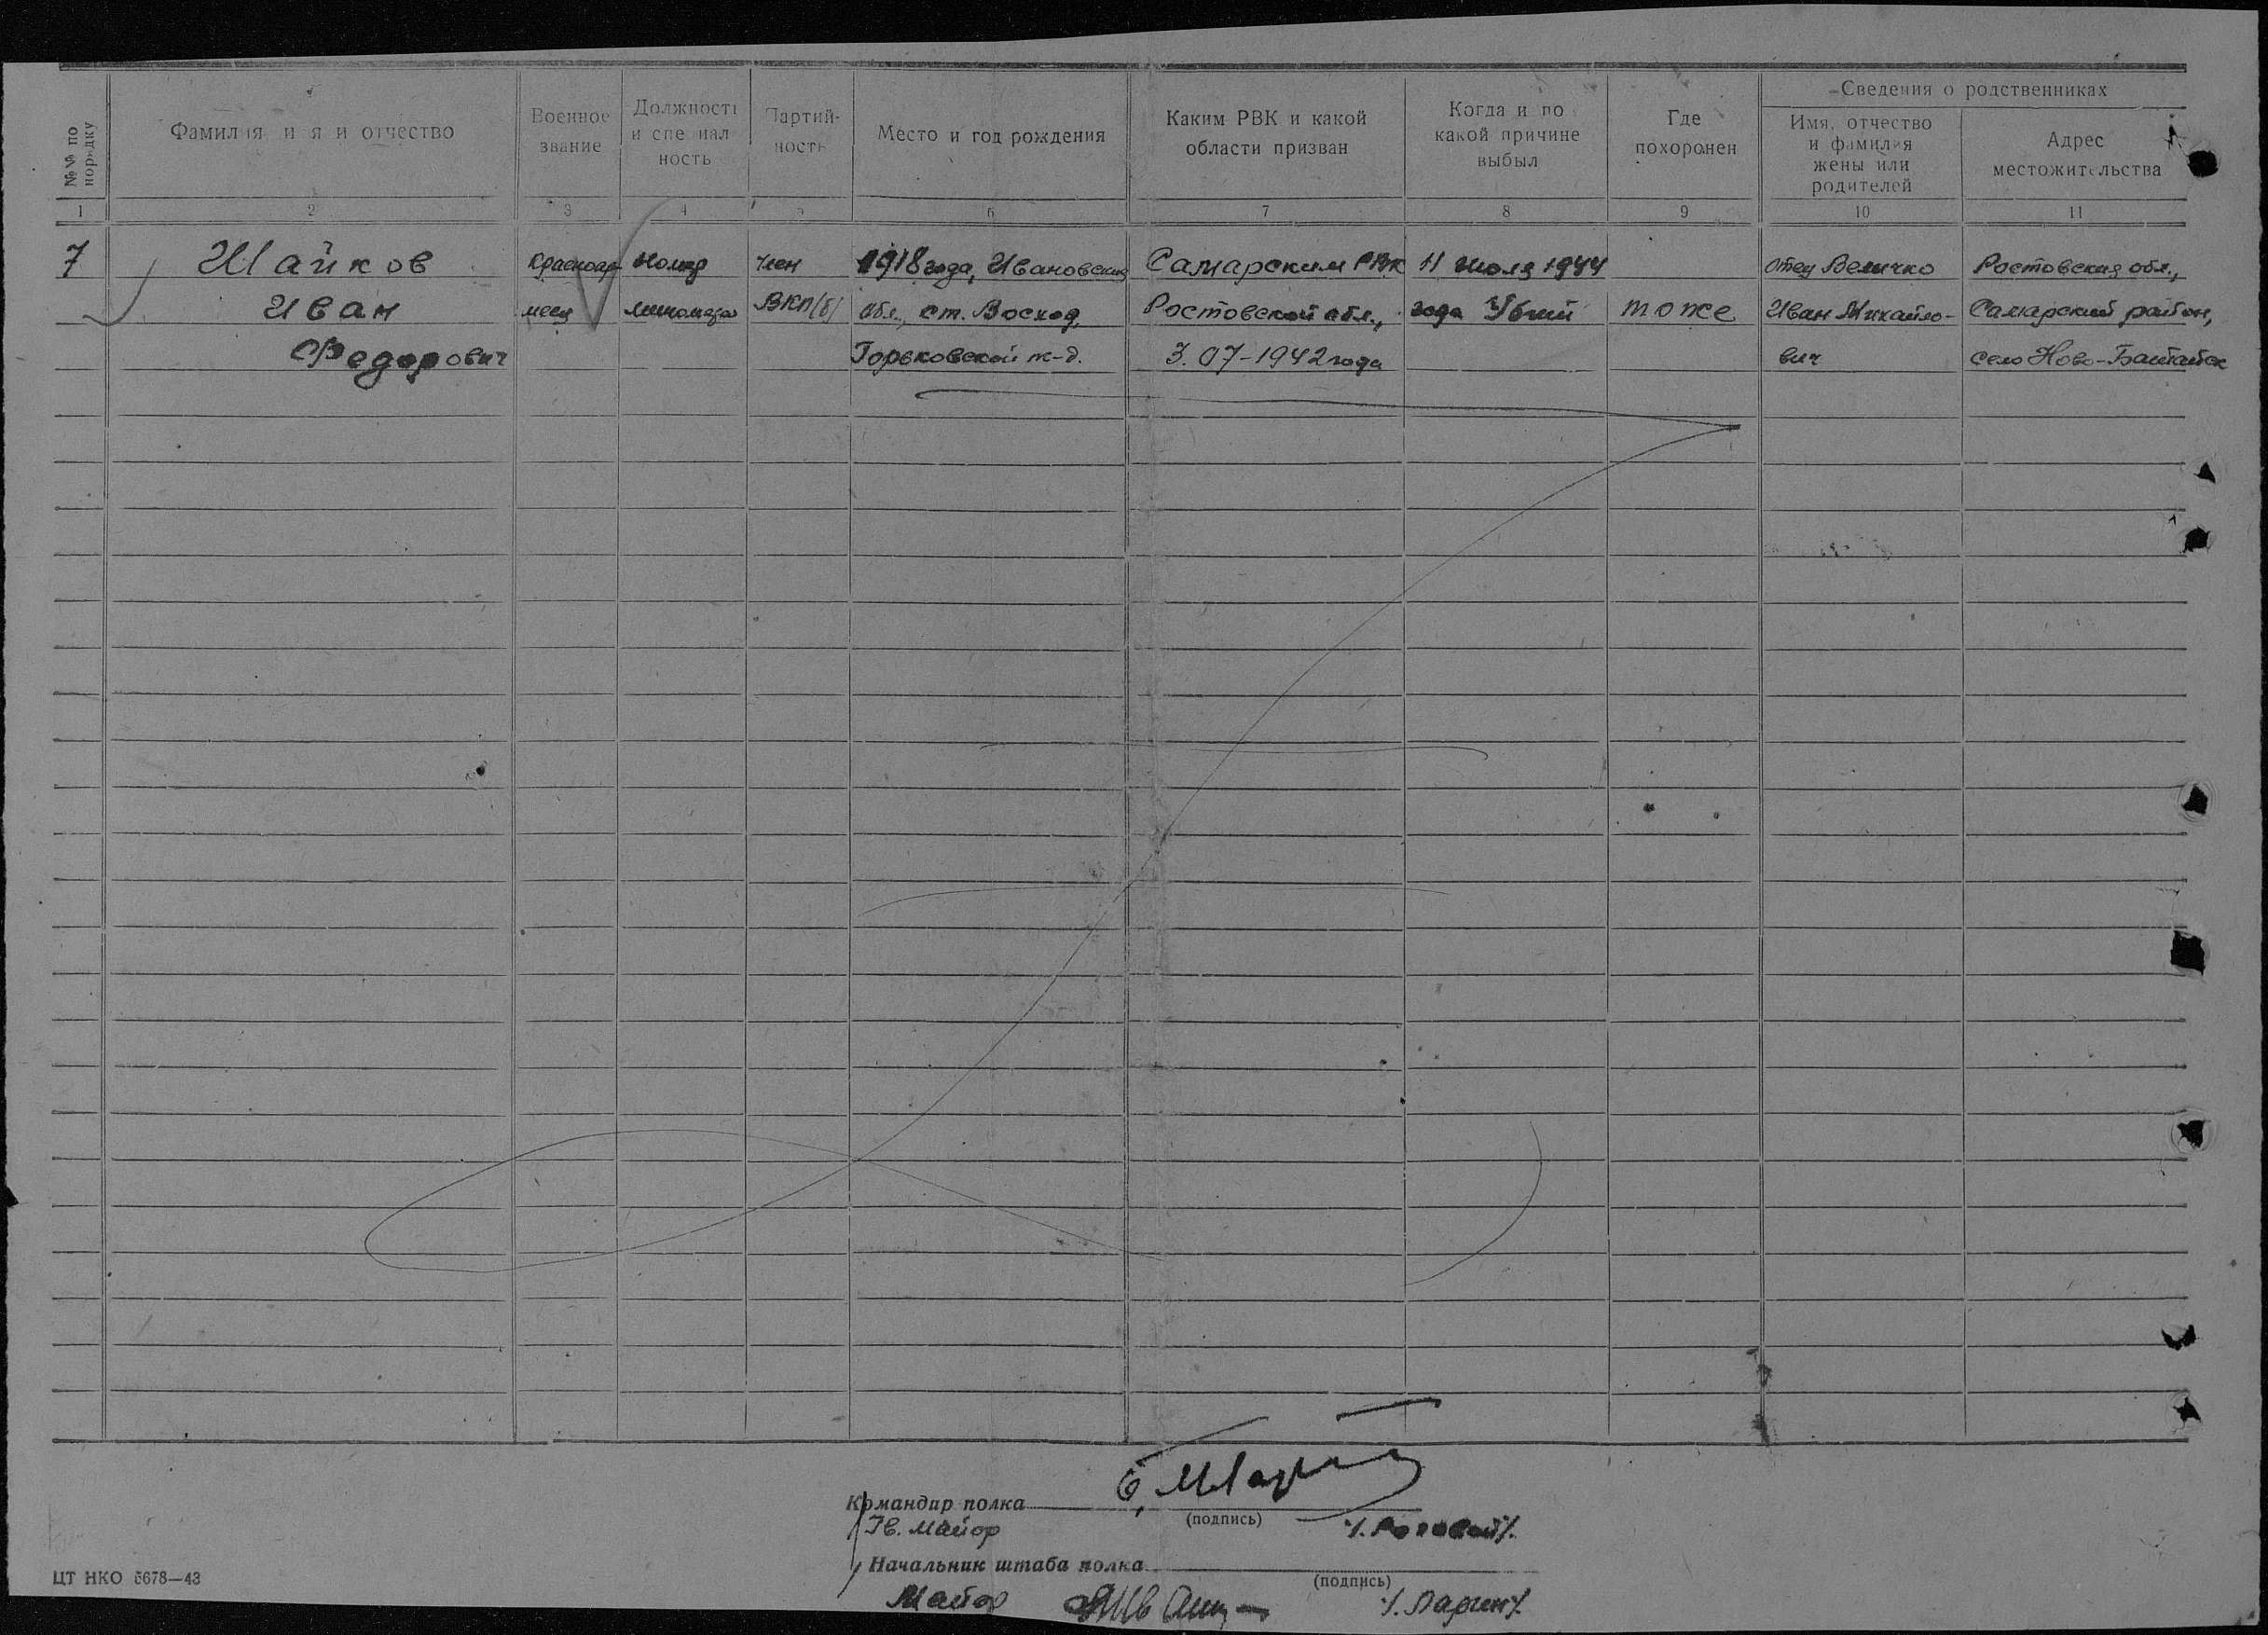 №№ по порядку
Фамилия имя и отчество
Военное звание
Должность и специальность
Партийность
Место и год рождения
Каким РВК и какой области призван
Когда и по какой причине выбыл
Где похоронен
Сведения о родственниках
Имя, отчество и фамилия жены или родителей
Адрес местожительства
1 2 3 4 5 6 7 8 9 10 11
7 Шайков красноар- номер член 1918 года, Ивановская Самарским РВК 11 июля 1944 отец Величко Ростовская обл.,
Иван меец миномета ВКП(б) обл., ст. Восход, Ростовской обл., года Убит тоже Иван Михайло- Самарский район,
Федорович Горьковской ж-д. 3.07-1942 года вич село Ново-Батайск
Командир полка
(подпись)
Гв. Майор
Начальник штаба полка
(подпись)
Майор /. Ларин/.
ЦТ НКО 5678—43